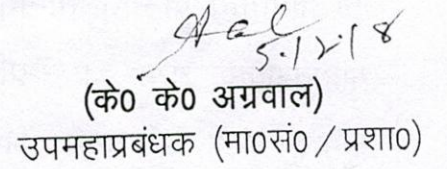 5.12.18
(के0 के0 अग्रवाल)
उपमहाप्रबंधक (मा0सं0 / प्रशा0)